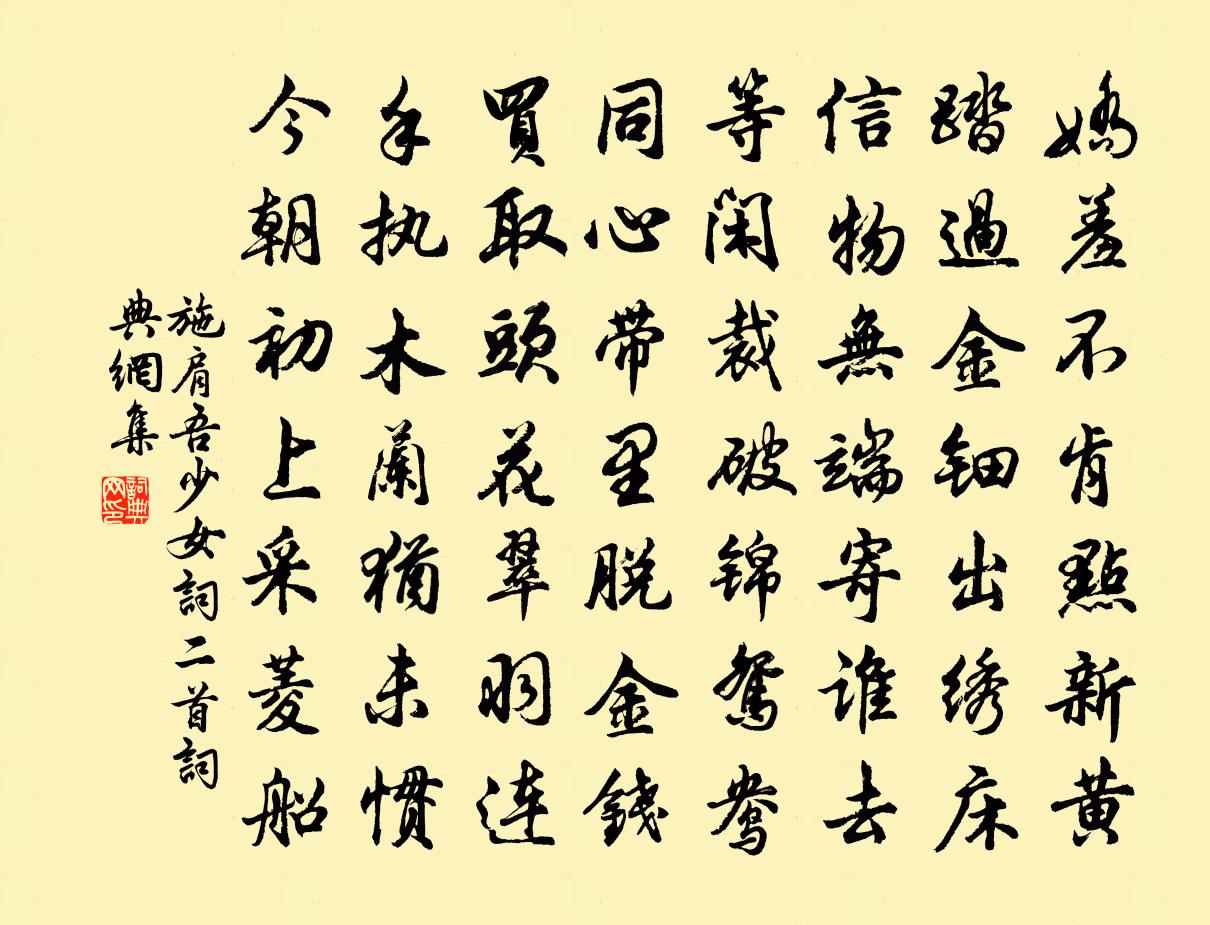 嬌羞不肯點新黄
踏過金鈿出绣床
信物無端寄谁去
等闲裁破锦鸳鸯
同心带里脱金錢
買取頭花翠羽连
手执木蘭猶未惯
今朝初上采菱船
施肩吾少女詞二首詞
典網集
詞典
网印